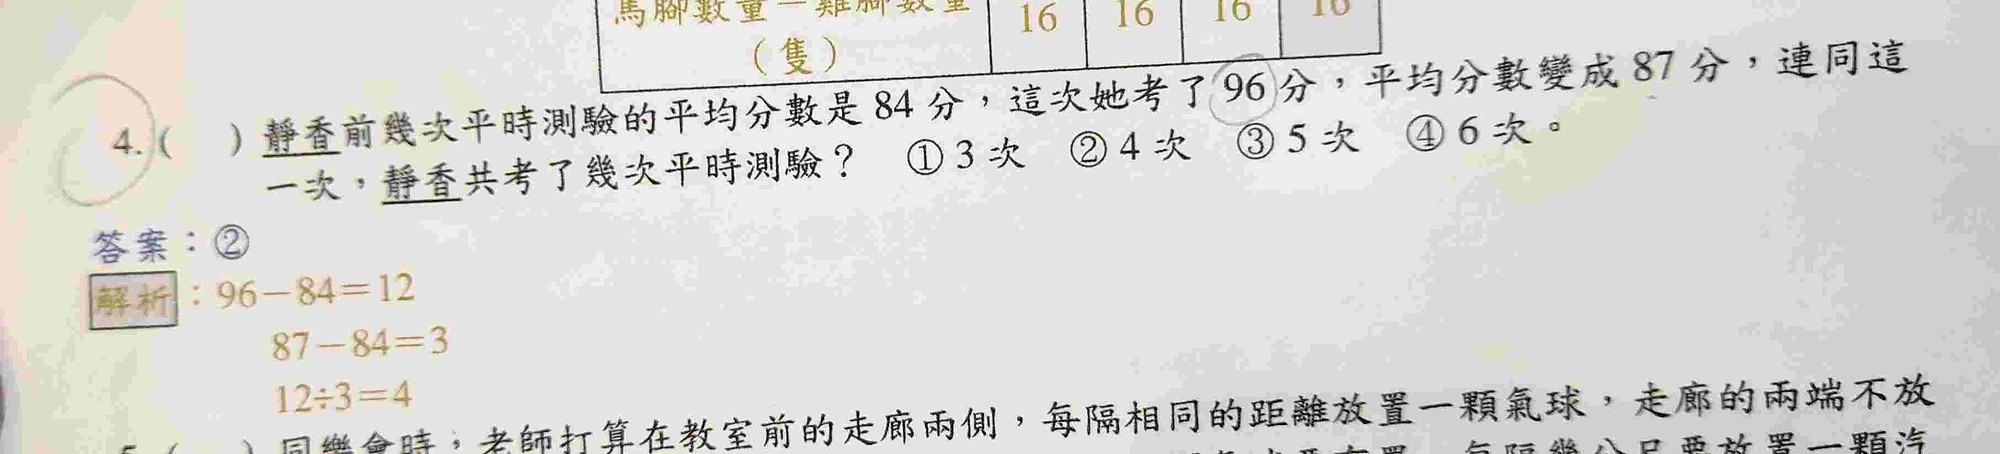 馬腳數量－雞腳數量
（隻） 16 16 16 16
4.（　）靜香前幾次平時測驗的平均分數是 84 分，這次她考了 96 分，平均分數變成 87 分，連同這
一次，靜香共考了幾次平時測驗？　① 3 次　② 4 次　③ 5 次　④ 6 次。
答案：②
解析：96－84＝12
87－84＝3
12÷3＝4
5.（　）同樂會時，老師打算在教室前的走廊兩側，每隔相同的距離放置一顆氣球，走廊的兩端不放
每隔幾公尺要放置一顆汽